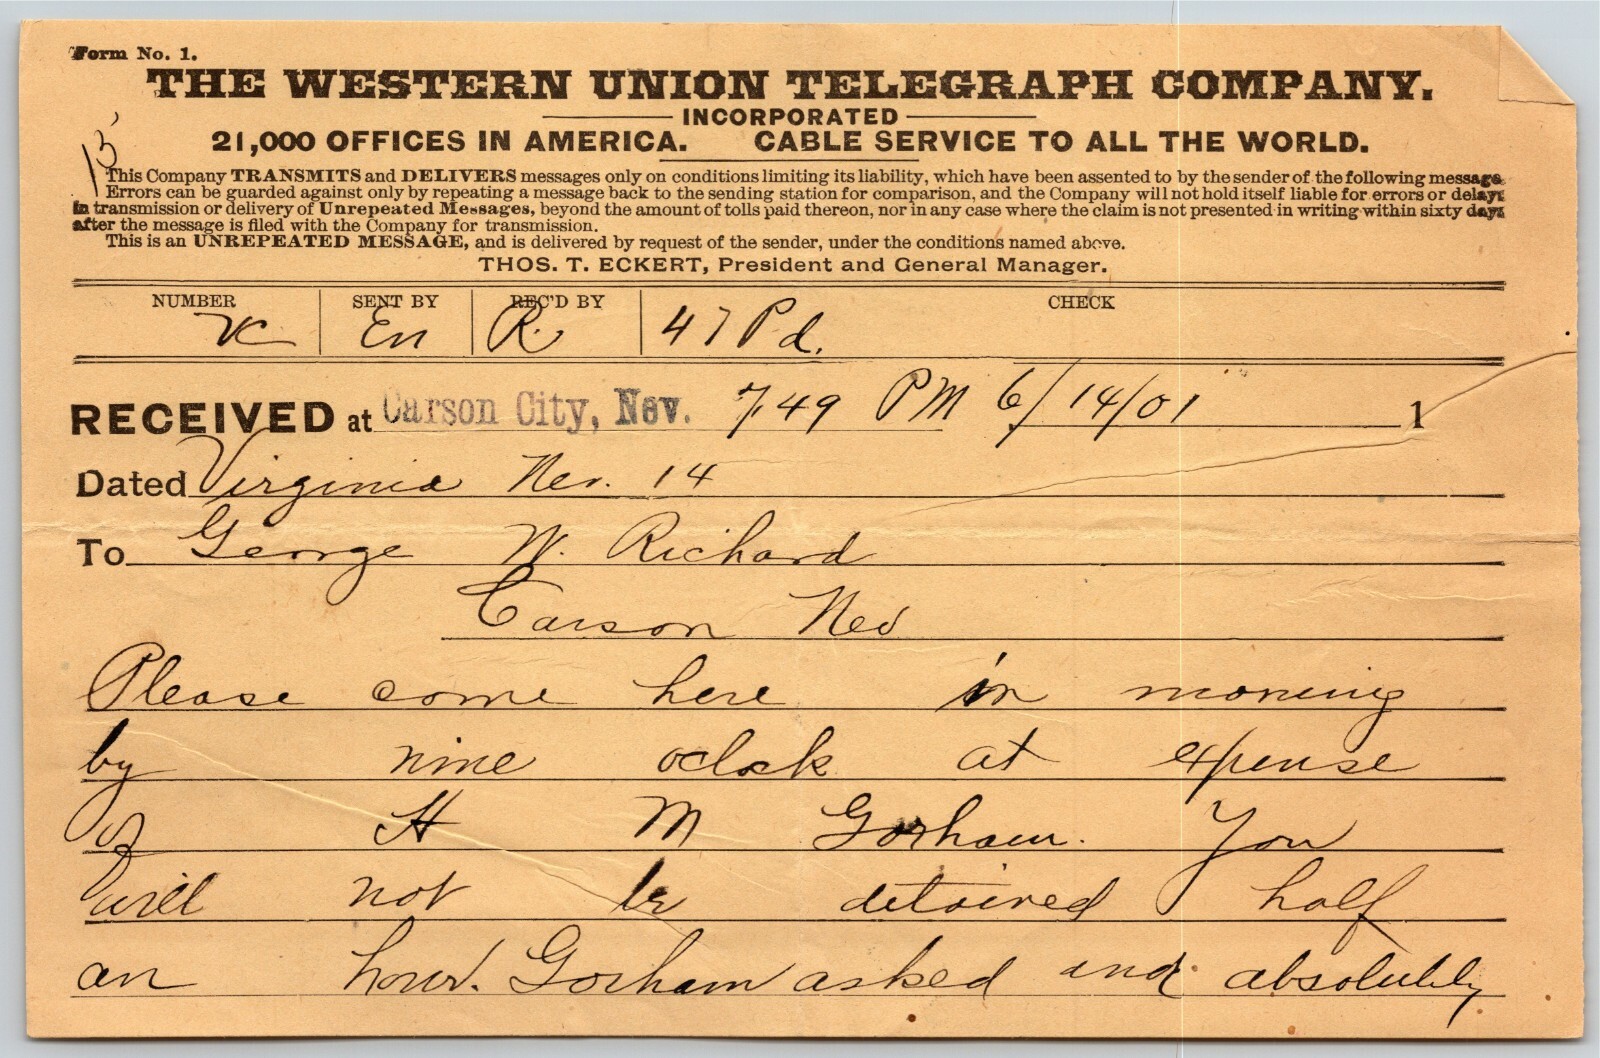 Form No. 1.
THE WESTERN UNION TELEGRAPH COMPANY.
INCORPORATED
21,000 OFFICES IN AMERICA. CABLE SERVICE TO ALL THE WORLD.
13
This Company TRANSMITS and DELIVERS messages only on conditions limiting its liability, which have been assented to by the sender of the following message
Errors can be guarded against only by repeating a message back to the sending station for comparison, and the Company will not hold itself liable for errors or delays
in transmission or delivery of Unrepeated Messages, beyond the amount of tolls paid thereon, nor in any case where the claim is not presented in writing within sixty days
after the message is filed with the Company for transmission.
This is an UNREPEATED MESSAGE, and is delivered by request of the sender, under the conditions named above.
THOS. T. ECKERT, President and General Manager.
NUMBER SENT BY REC'D BY CHECK
En R. 47 Pd.
RECEIVED at Carson City, Nev. 7.49 PM 6/14/01 1
Dated Virginia Nev. 14
To George W. Richard
Carson Nev
Please come here in morning
by nine oclock at expense
of H M Gorham. You
will not be detained half
an hour. Gorham asked and absolutely